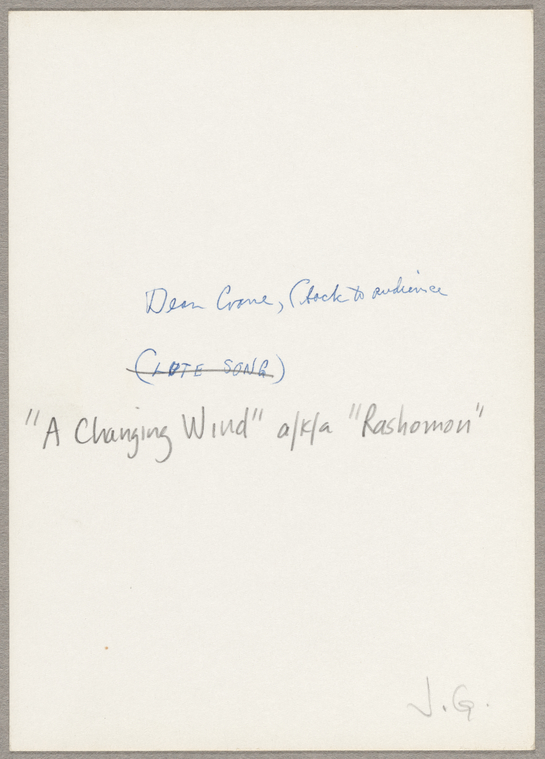 Dean Crane, (back to audience
(LUTE SONG)
"A Changing Wind" a/k/a "Rashomon"
J.G.